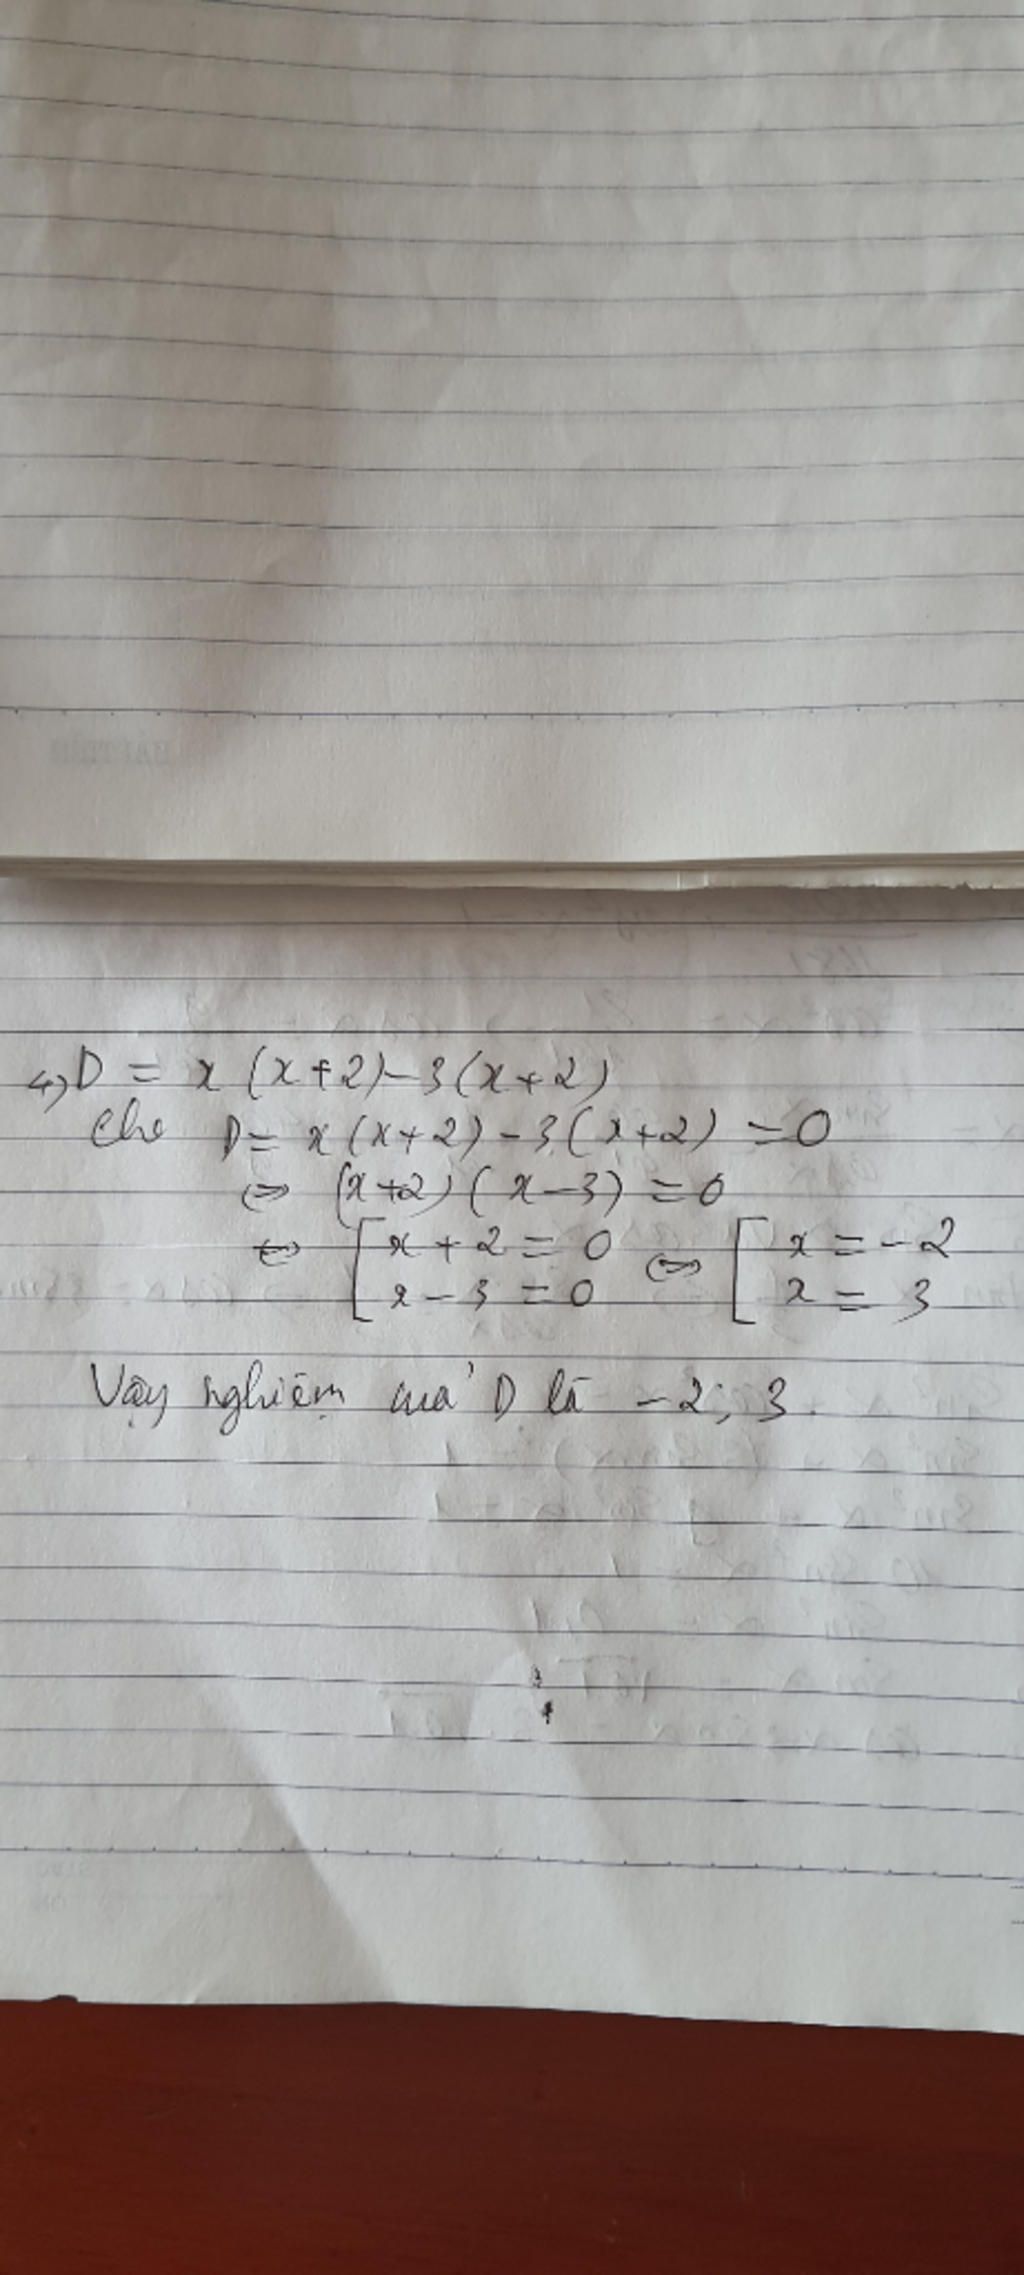 4, D = x (x+2) - 3(x+2)
Cho D = x(x+2) - 3(x+2) = 0
⇔ (x+2)(x-3) = 0
⇔ [ x + 2 = 0 ⇔ [ x = -2
x - 3 = 0 x = 3
Vậy nghiệm của D là -2; 3.